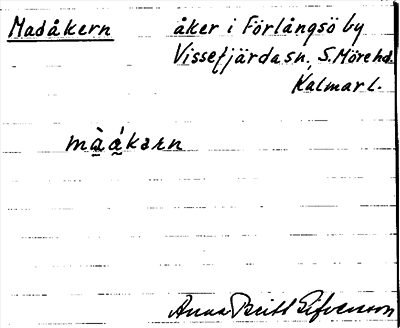 Madåkern åker i Förlångsö by
Vissefjärda sn, S. Möre hd.
Kalmar l.
mà̱á̱kərn
Anna Britt Sifvensson